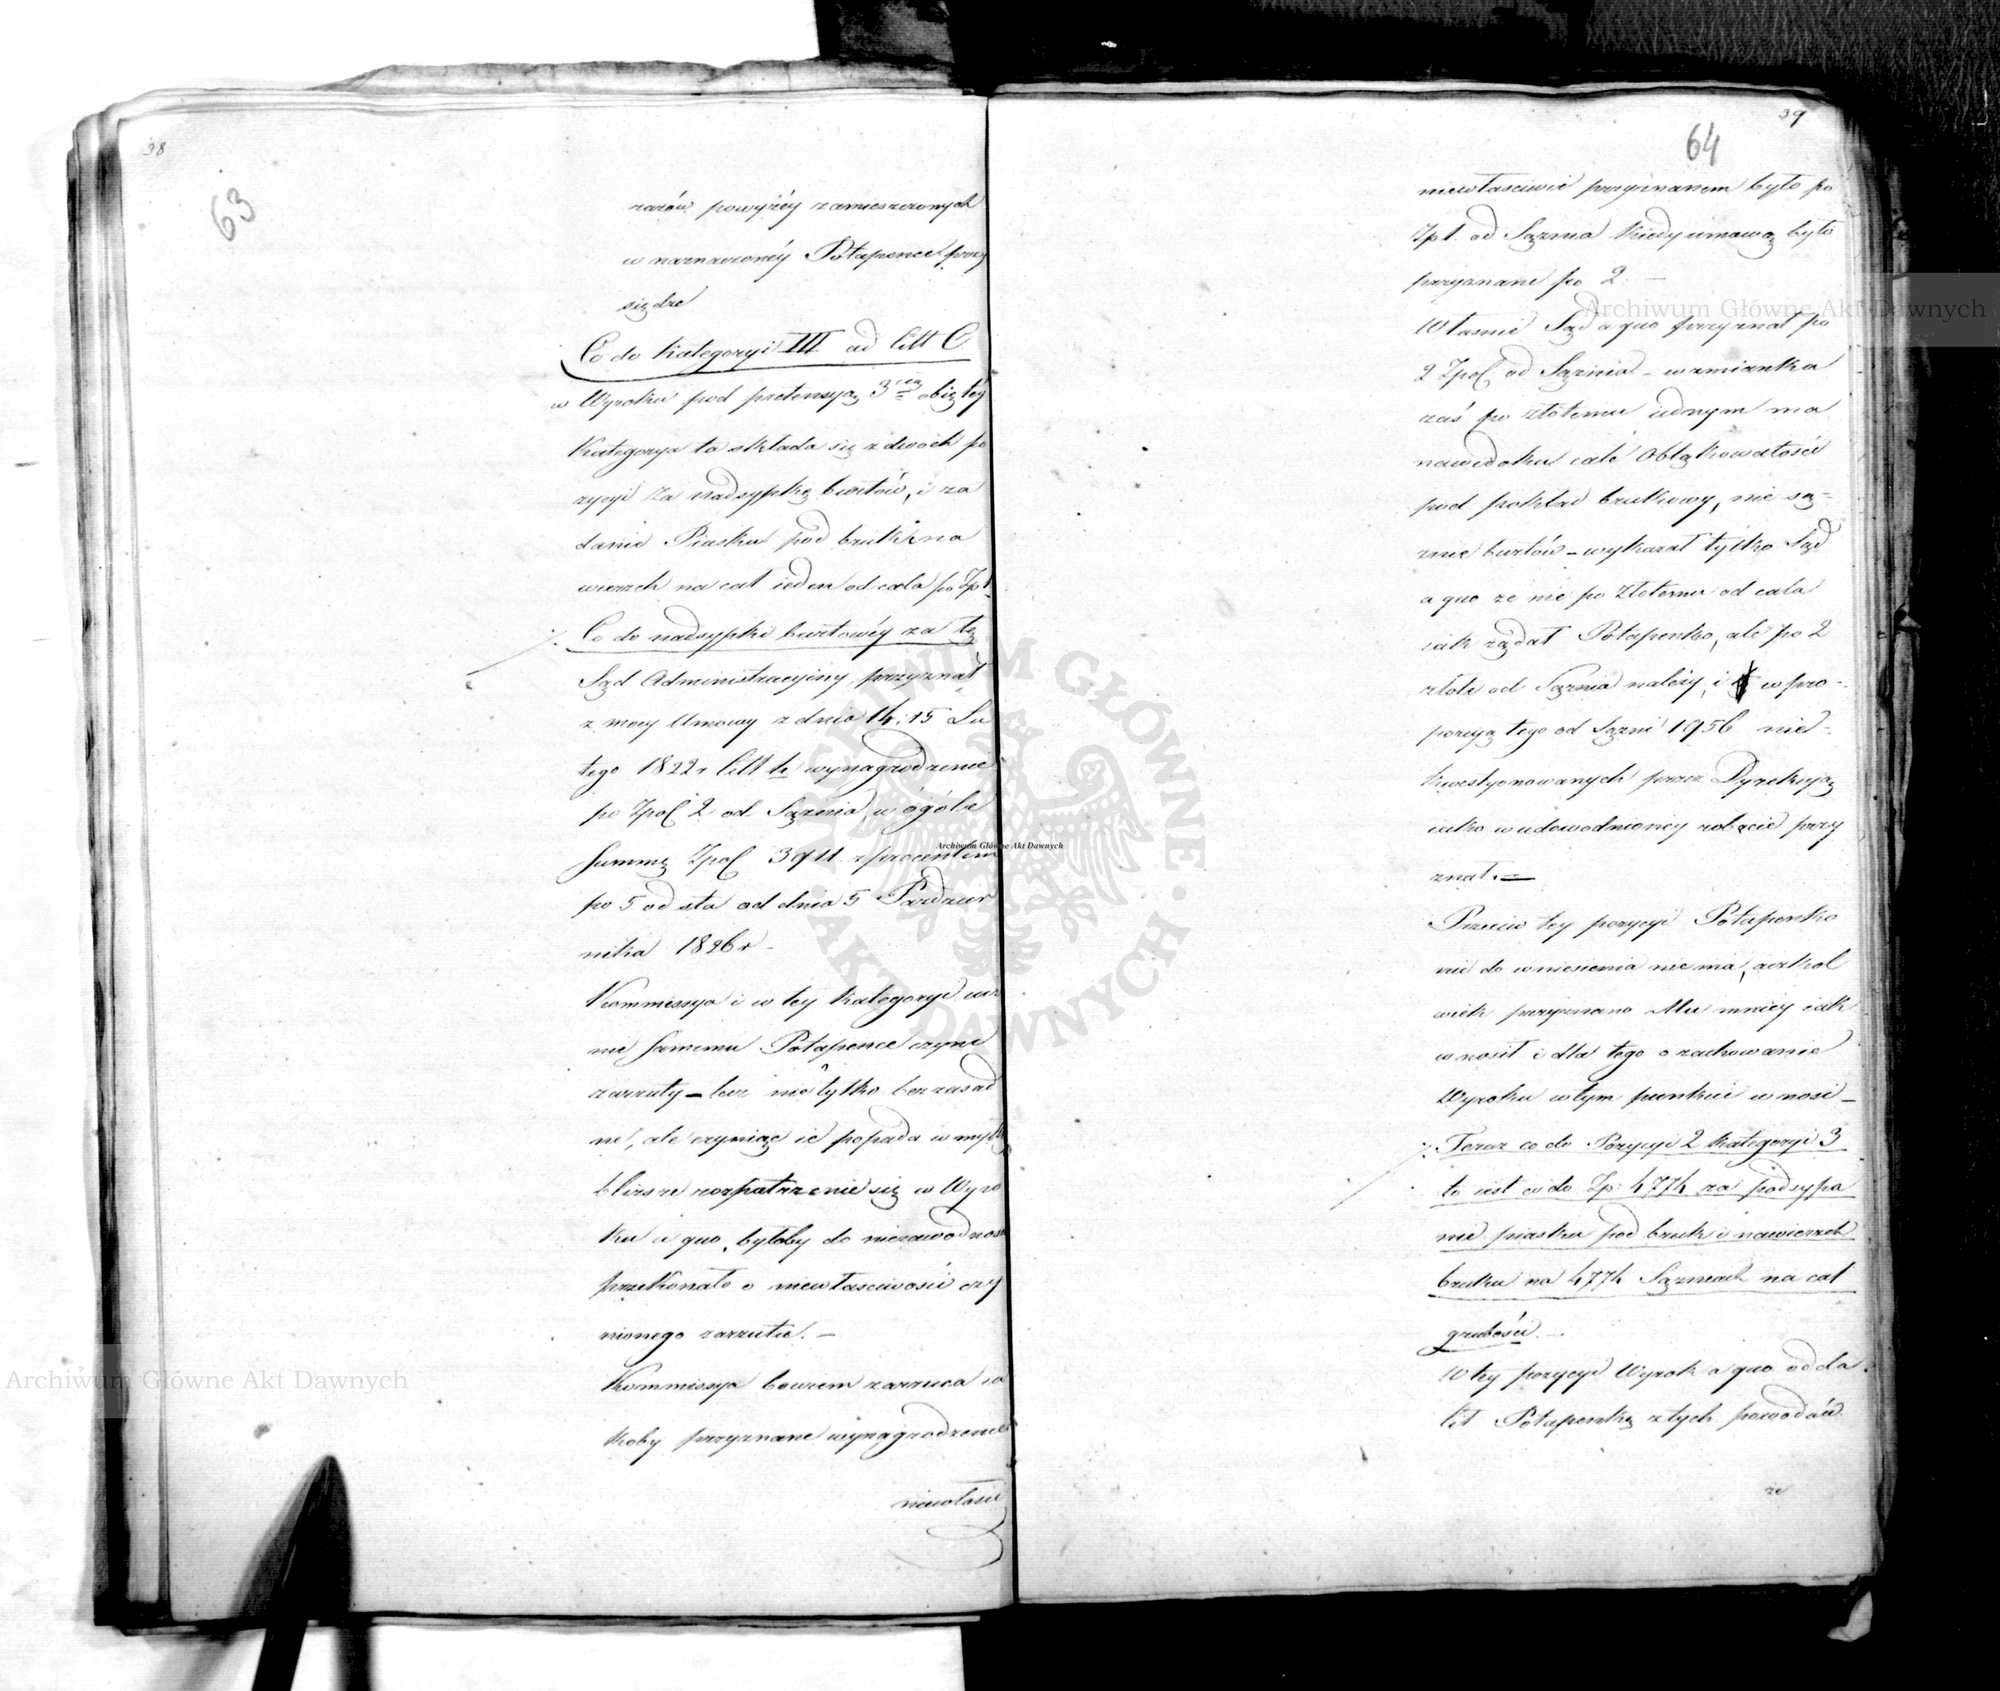 38
63
razów powyżéy zamieszczonych
w naznaczonéy Potapence przy
siędze
Co do kategoryi III ad litt C.
w Wyroku pod pretensyą 3cią obiętéy
Kategorya ta składa się z dwóch po
zycyi za nadsypkę burtów, i za
danie Piasku pod bruk i na
wierzch na cal ieden od cala po Zp 1.
Co do nadsypki burtowéy za tę
Sąd Administracyiny przyznał
z mocy Umowy z dnia 14:15 Lu
tego 1822 r litt k wynagrodzenie
po Zpol 2 od Sążnia, w ogóle
Summę Zpol 3911. z procentem
po 5 od sta od dnia 5 Paździer
nika 1826 r.
Kommissya i w tey kategoryi
me samemu Potapence czyni
zarzuty – lecz nie tylko bezzasad
ne, ale czyniąc ie popada w
bliższe rozpatrzenie się w Wyro
ku a quo, byłoby do niezawodnosci
przekonało o niewłasciwosci czy
nionego zarzutu. –
Kommissya bowiem zarzuca ia
koby przyznane wynagrodzenie
niewłasci
39
64
niewłasciwie przyznanem było po
Zp 1. od Sążnia kiedy umową było
przyznane po 2. –
Własnie Sąd a quo przyznał po
2 Zpol od Sążnia – wzmianka
zaś po złotemu iednym ma
nawidoku cale Obłąkowatości
pod pokład brukowy, nie są-
żnie burtów – wykazał tylko Sąd
a quo że nie po złotemu od cala
iak żądał Potapenko, ale po 2
złote od Sążnia należy, i w pro-
porcyą tego od Sążni 1956 nie-
kwestyonowanych przez Dyrekcyą
iako w udowodnioney robocie przy
znał. –
Przeciw tey pozycyi Potapenko
nic do wniesienia nie ma, aczkol
wiek przyznano Mu mniey iak
wnosił i dla tego o zachowanie
Wyroku w tym punkcie wnosi –
Teraz co do Pozycyi 2 kategoryi 3
to iest co do Zp: 4774 za podsypa
nie piasku pod bruk i nawierzch
bruku na 4774 Sążniach na cal
grubości. –
W tey pozycyi Wyrok a quo odda
lił Potapenkę z tych powodów
że
Archiwum Główne Akt Dawnych
Archiwum Główne Akt Dawnych
Archiwum Główne Akt Dawnych
ARCHIWUM GŁÓWNE · AKT DAWNYCH ·